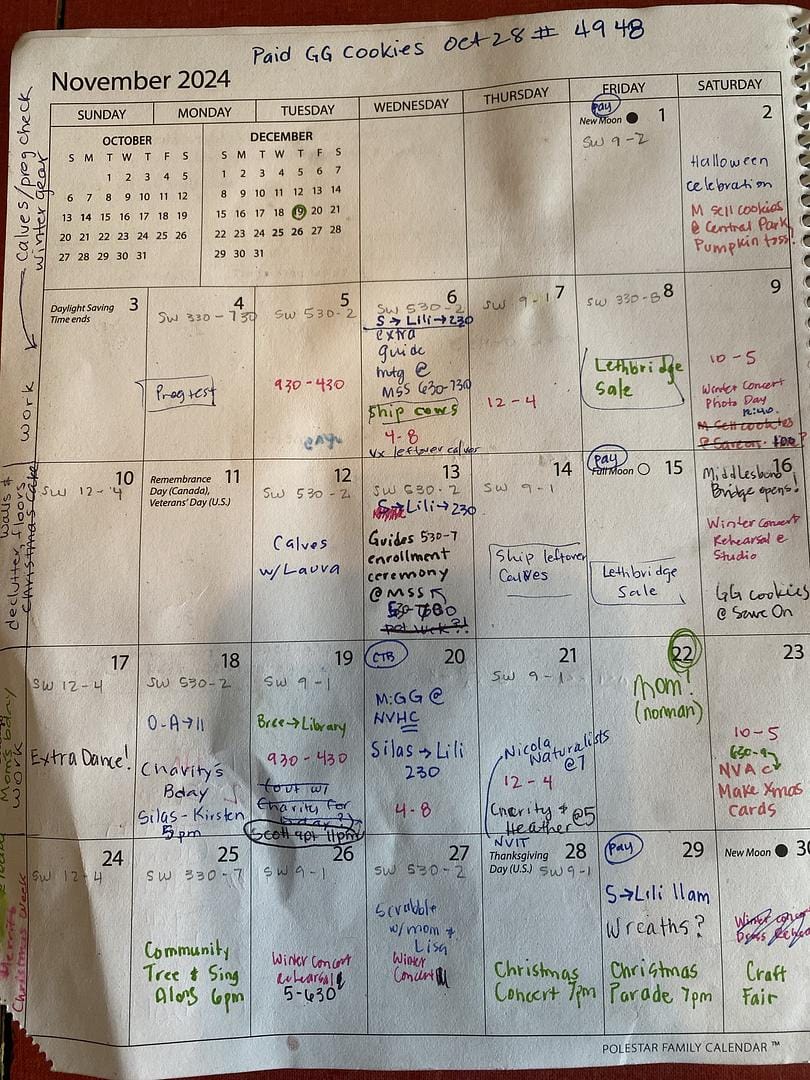 Paid GG Cookies Oct 28 # 4948
November 2024
SUNDAY MONDAY TUESDAY WEDNESDAY THURSDAY FRIDAY SATURDAY
OCTOBER
S M T W T F S
1 2 3 4 5
6 7 8 9 10 11 12
13 14 15 16 17 18 19
20 21 22 23 24 25 26
27 28 29 30 31
DECEMBER
S M T W T F S
1 2 3 4 5 6 7
8 9 10 11 12 13 14
15 16 17 18 19 20 21
22 23 24 25 26 27 28
29 30 31
Pay
New Moon 1
SW 9-2
2
Halloween
celebration
M sell cookies
@ Central Park
Pumpkin toss!
Calves/preg check
winter gear
Daylight Saving
Time ends
3
4
SW 330-730
Preg test
5
SW 530-2
930-430
6
SW 530-2
S→Lili→230
extra
guide
mtg @
MSS 630-730
Ship cows
4-8
Vx leftover calves
7
SW 9-1
12-4
8
SW 330-8
Lethbridge
Sale
9
10-5
Winter Concert
Photo Day
12:40
M Sell cookies
work
10
SW 12-4
Remembrance
Day (Canada),
Veterans' Day (U.S.)
11
12
SW 530-2
Calves
w/Laura
13
SW 530-2
S→Lili→230
Guides 530-7
enrollment
ceremony
@ MSS
14
SW 9-1
Ship leftover
Calves
pay
Full Moon 15
Lethbridge
Sale
16
Bridge opens!
Winter Concert
Rehearsal @
Studio
GG cookies
@ Save On
walls &
declutter, floors
Christmas cake
17
SW 12-4
Extra Dance!
18
SW 530-2
O-A→11
Charity's
Bday
Silas-Kirsten
5pm
19
SW 9-1
Bree→Library
930-430
Charity for
20
CTB
M:GG @
NVHC
Silas→Lili
230
4-8
21
SW 9-1
Nicola
Naturalists
@7
12-4
Charity &
Heather @5
NVIT
22
Mom!
(norman)
23
10-5
630-9
NVAC
Make Xmas
Cards
Mom's bday
work
24
SW 12-4
25
SW 330-7
Community
Tree & Sing
Along 6pm
26
SW 9-1
Winter Concert
rehearsal
5-630
27
SW 530-2
Scrabble
w/mom &
Lisa
Winter
Concert
Thanksgiving
Day (U.S.)
28
SW 9-1
Christmas
Concert 7pm
pay
29
S→Lili 11am
Wreaths?
Christmas
Parade 7pm
New Moon 30
Craft
Fair
Christmas week
POLESTAR FAMILY CALENDAR ™